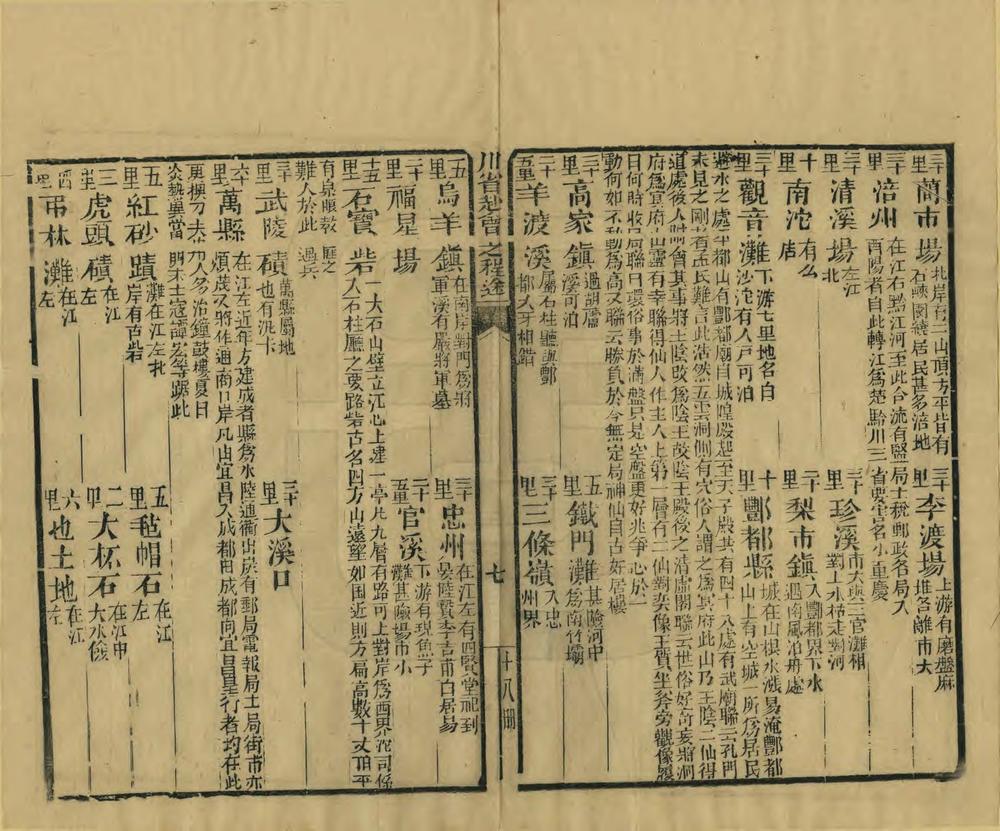 三十里 藺市場 北岸有二山頂方平皆有
石峽園繞居民甚多涪地
三十里 李渡場 上游有磨盤麻
堆笞離市大
三十里 涪州 在江右黔江河至此合流有鹽局土稅郵政各局入
酉陽者自此轉江為楚黔川三省要定名小重慶
三十里 清溪場 左江北
三十里 珍溪 市大與三官灘相
對上水枯走對河
十里 南沱 有么店
二十里 梨市鎮 入酆都界下水
遇南風泊舟處
三十里 觀音灘 下游七里地名白
沙沱有人戶可泊
十里 酆都縣 城在山根水漲易淹酆都
山上有空城一所為居民
避水之處平都山有酆都廟自城隍殿起至天子殿共有四十八處有武廟聯云孔門
未見之剛者孟氏難言此浩然五雲洞側有穴俗人謂之為冥府此山乃王陰二仙得
道處後人附會其事將王陰改為陰王改陰王殿後之清虛閣聯云世俗好奇妄將洞
府為冥府山靈有幸聯得仙人作主人上第一層有二仙對奕像王質坐斧旁觀像鳳
日何時收局聯曰環俗事於滿盤只見空盤更好兆爭心於一
動何如不動為高又聯云勝負於今無定局神仙自古好居樓
三十里 高家鎮 過胡盧
溪可泊
五里 鐵門灘 甚險河中
為南竹壩
二十五里 羊渡溪 屬石柱廳與酆
都犬牙相錯
三十里 三條嶺 入忠
州界
川省抄會之程途 七 十八冊
五里 烏羊鎮 在南岸對門為將
軍溪有嚴將軍墓
三十里 忠州 在江左有四賢堂祀刘
晏陸贄李吉甫白居易
二十里 福星場
二十五里 官溪 下游有現魚子
灘甚險場市小
十五里 石寶砦 一大石山壁立江心上建一亭共九層有路可上對岸為西界沱司係
入石柱廳之要路砦古名四方山遠望如囷近則方扁高數十丈頂平
有泉眼教匪之
難人於此過兵
三十里 武陵磧 萬縣屬地
也有汛卡
三十里 大溪口
六十里 萬縣 在江左近年方建成者縣為水陸通衢出炭有郵局電報局土局街市亦
煩茂又將作通商口岸凡由宜昌入成都由成都向宜昌旱行者均在此
更換刀夫
炎熱異當
五里 紅砂蹟 灘在江左北
岸有古砦
五里 毡帽石 在江
左
三里 虎頭磧 在江
左
二里 大杯石 在江中
大水險
四里 弔林灘 在江
左
六里 也土地 在江
左